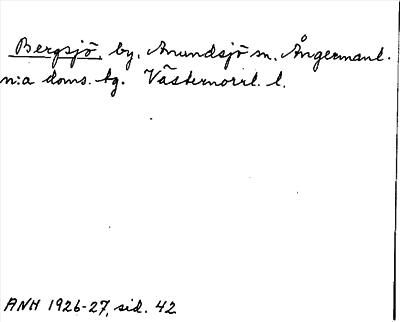 Bergsjö, by, Anundsjö sn, Ångermanl.
n:a doms. tg. Västernorrl. l.
ANH 1926-27, sid. 42